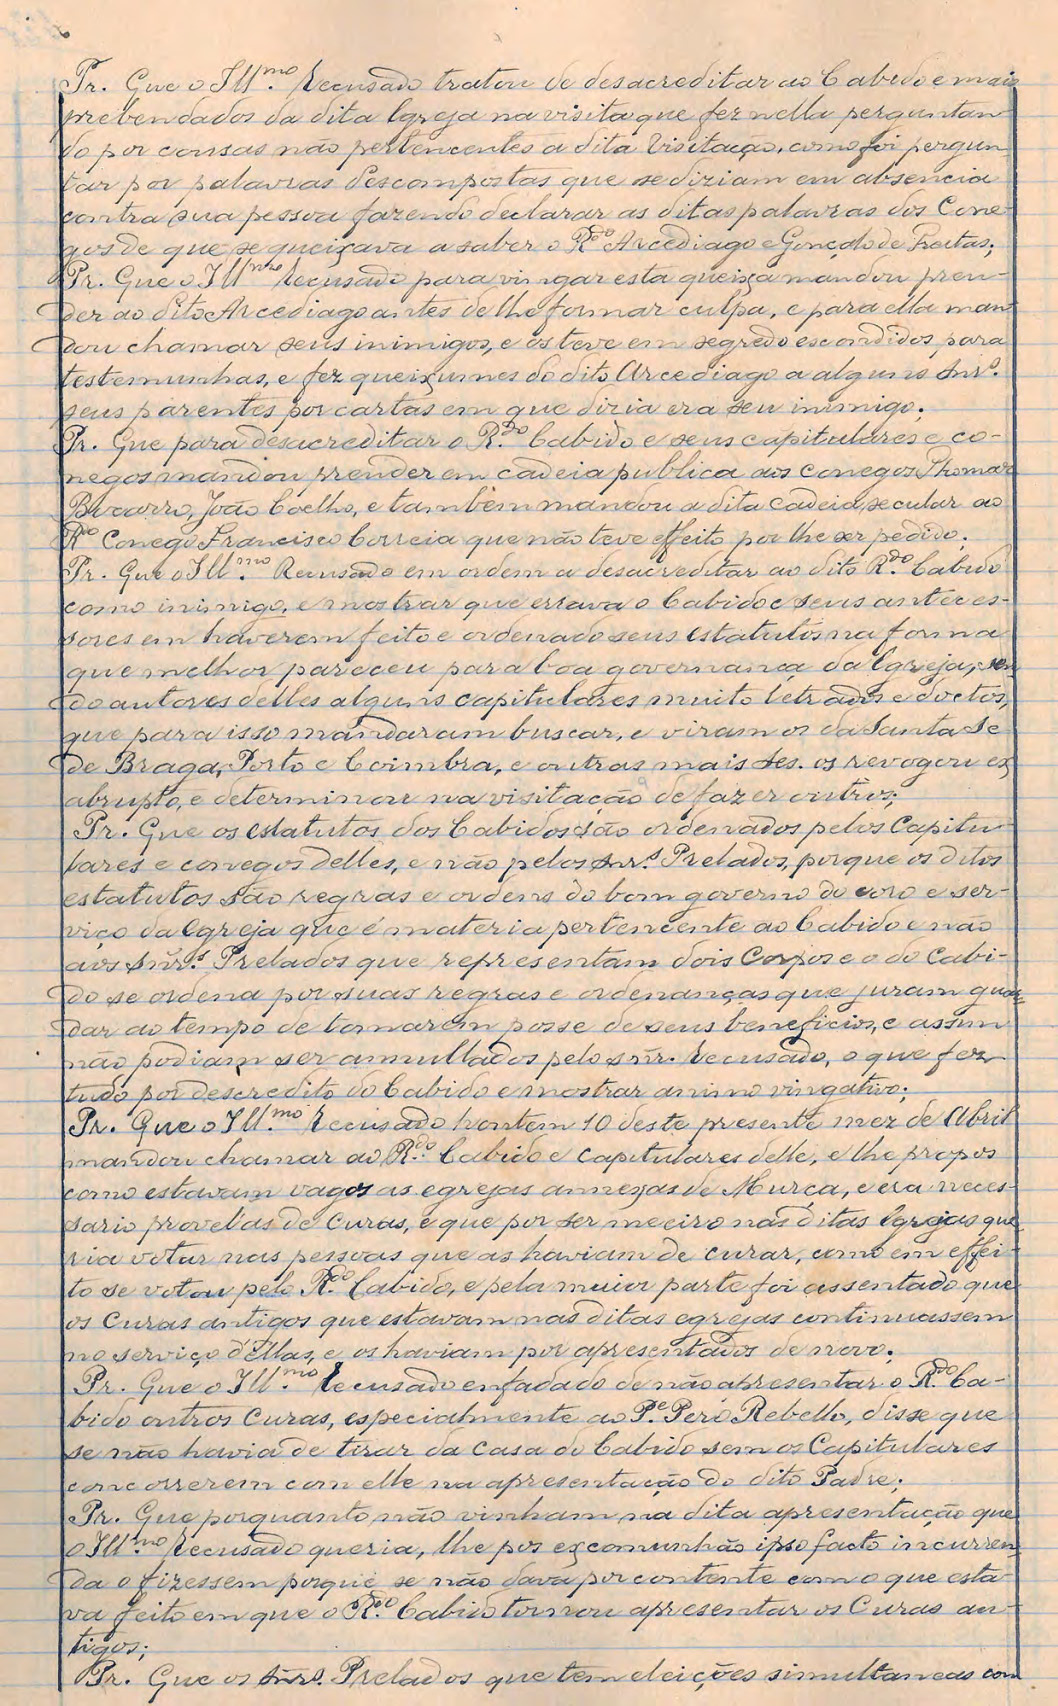 Pr. Que o Ill.mo Recusado tratou de desacreditar ao Cabido e mais
prebendados da dita Igreja na visita que fez nella perguntan
do por cousas não pertencentes a dita Visitação, como foi pergun
tar por palavras descompostas que se diziam em absencia
contra sua pessoa fazendo declarar as ditas palavras dos Cone-
gos de que se queixava a saber o R.do Arcediago e Gonçalo de Freitas;
Pr. Que o Ill.mo Recusado para vingar esta queixa mandou pren-
der ao dito Arcediago antes de lhe formar culpa, e para ella man
dou chamar seus inimigos, e os teve em segredo escondidos para
testemunhas, e fez queixumes do dito Arcediago a alguns Snrs.
seus parentes por cartas em que dizia era seu inimigo;
Pr. Que para desacreditar o R.do Cabido e seus capitulares e co-
negos mandou prender em cadeia publica aos conegos Thomaz
Bivarro, João Coelho, e tambem mandou a dita cadeia secular ao
R.do Conego Francisco Correia que não teve effeito por lhe ser pedido;
Pr. Que o Ill.mo Recusado em ordem a desacreditar ao dito R.do Cabido
como inimigo, e mostrar que errava o Cabido e seus anteces-
sores em haverem feito e ordenado seus estatutos na forma
que melhor pareceu para boa governança da Igreja, sen
do autores delles alguns capitulares muito letrados e doctos,
que para isso mandaram buscar, e viram os da Santa Sé
de Braga, Porto e Coimbra, e outras mais Ses. os revogou ex
abrupto, e determinou na visitação de fazer outros;
Pr. Que os estatutos dos Cabidos são ordenados pelos Capitu-
lares e conegos delles, e não pelos Snrs. Prelados, porque os ditos
estatutos são regras e ordens do bom governo do coro e ser-
viço da Egreja que é materia pertencente ao Cabido e não
aos Snrs. Prelados que representam dois Corpos e o do Cabi-
do se ordena por suas regras e ordenanças que juram guar
dar ao tempo de tomarem posse de seus beneficios, e assim
não podiam ser annullados pelo snr. Recusado, o que fez
tudo por descredito do Cabido e mostrar animo vingativo;
Pr. Que o Ill.mo Recusado hontem 10 deste presente mez de Abril
mandou chamar ao R.do Cabido e capitulares delle, e lhe propos
como estavam vagos as egrejas annexas de Murça, e era neces-
sario provel'as de curas, e que por ser meeiro nas ditas Igrejas que
ria votar nas pessoas que as haviam de curar, como em effei-
to se votou pelo R.do Cabido, e pela maior parte foi assentado que
os Curas antigos que estavam nas ditas egrejas continuassem
no serviço d'ellas, e os haviam por apresentados de novo;
Pr. Que o Ill.mo Recusado enfadado de não apresentar o R.do Ca-
bido outros Curas, especialmente ao P.e Pero Rebello, disse que
se não havia de tirar da casa do Cabido sem os Capitulares
concorrerem com elle na apresentação do dito Padre;
Pr. Que porquanto não vinham na dita apresentação que
o Ill.mo Recusado queria, lhe pos excomunhão ipso facto incurren
da o fizessem porque se não dava por contente com o que esta-
va feito em que o R.do Cabido tornou apresentar os Curas an-
tigos;
Pr. Que os Snrs. Prelados que tem eleições simultaneas com